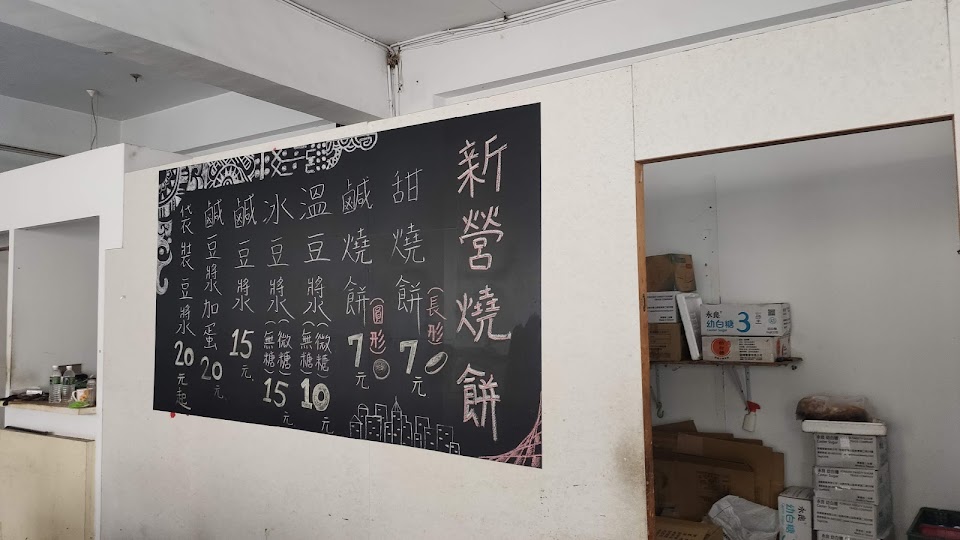 新營燒餅
甜燒餅(長形)7元
鹹燒餅(圓形)7元
溫豆漿(微糖)10元
冰豆漿(無糖)(微糖)(無糖)15元
鹹豆漿15元
鹹豆漿加蛋20元
袋裝豆漿20元起
永兆
幼白糖3
幼白糖